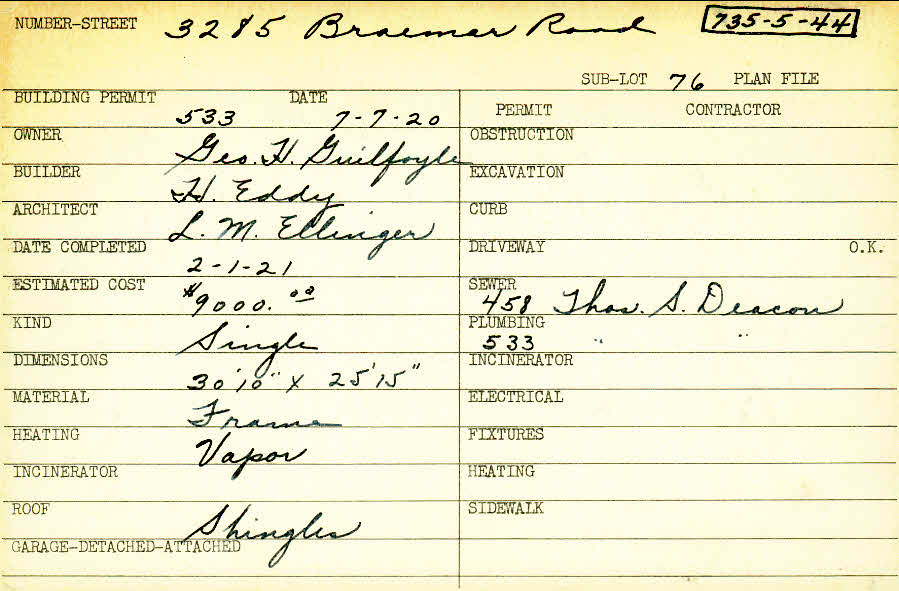 NUMBER-STREET 3285 Braemar Road 735-5-44
SUB-LOT 76 PLAN FILE
BUILDING PERMIT DATE
533 7-7-20
PERMIT CONTRACTOR
OWNER Geo. H. Guilfoyle
BUILDER H. Eddy
ARCHITECT L. M. Ellinger
DATE COMPLETED 2-1-21
ESTIMATED COST $9000.00
KIND Single
DIMENSIONS 30'10" X 25'15"
MATERIAL Frame
HEATING Vapor
INCINERATOR
ROOF Shingles
GARAGE-DETACHED-ATTACHED
OBSTRUCTION
EXCAVATION
CURB
DRIVEWAY O.K.
SEWER 458 Thos. S. Deacon
PLUMBING 533 " "
INCINERATOR
ELECTRICAL
FIXTURES
HEATING
SIDEWALK